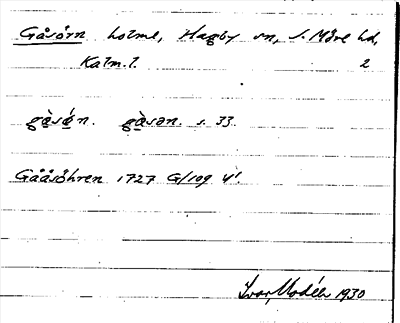 Gåsörn holme, Hagby sn, S. Möre hd,
Kalm. l. 2
gåsǿn. gàsən. s. 33.
Gååsöhren 1727 G/109 4¹.
Ivar Modéer 1930